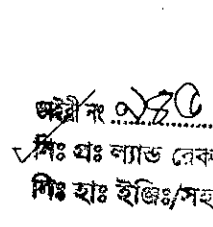 ডাইরী নং ১৪৫
সিঃ প্রঃ ল্যান্ড রেক
সিঃ হাঃ ইঞ্জিঃ/সহ